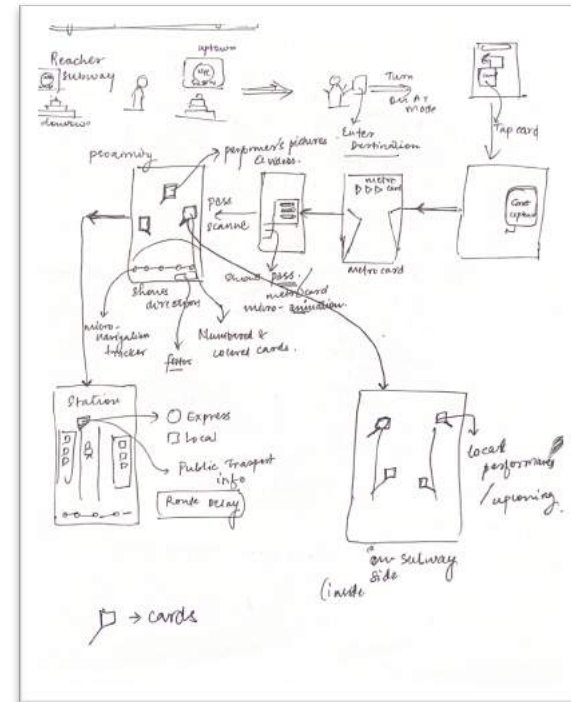 uptown
Reaches
subway
Turn
on AT
mode
Enter
Destination
Tap card
proximity
performer's pictures
& videos.
pass
scanner
metro
card
metro card
shows pass.
metrocard
micro-animation.
shows
directions
micro-
navigation
tracker
Numbered &
colored cards.
Station
Express
Local
Public Transport
info
Route Delay
local
performances
/upcoming
on subway
side
(inside
→ cards